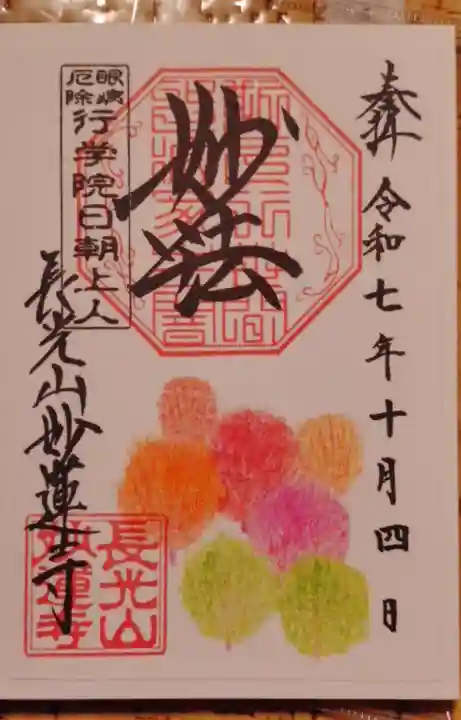 奉拝 令和七年十月四日
妙法
眼病
厄除
行学院日朝上人
長光山妙蓮寺
長光山
妙蓮寺